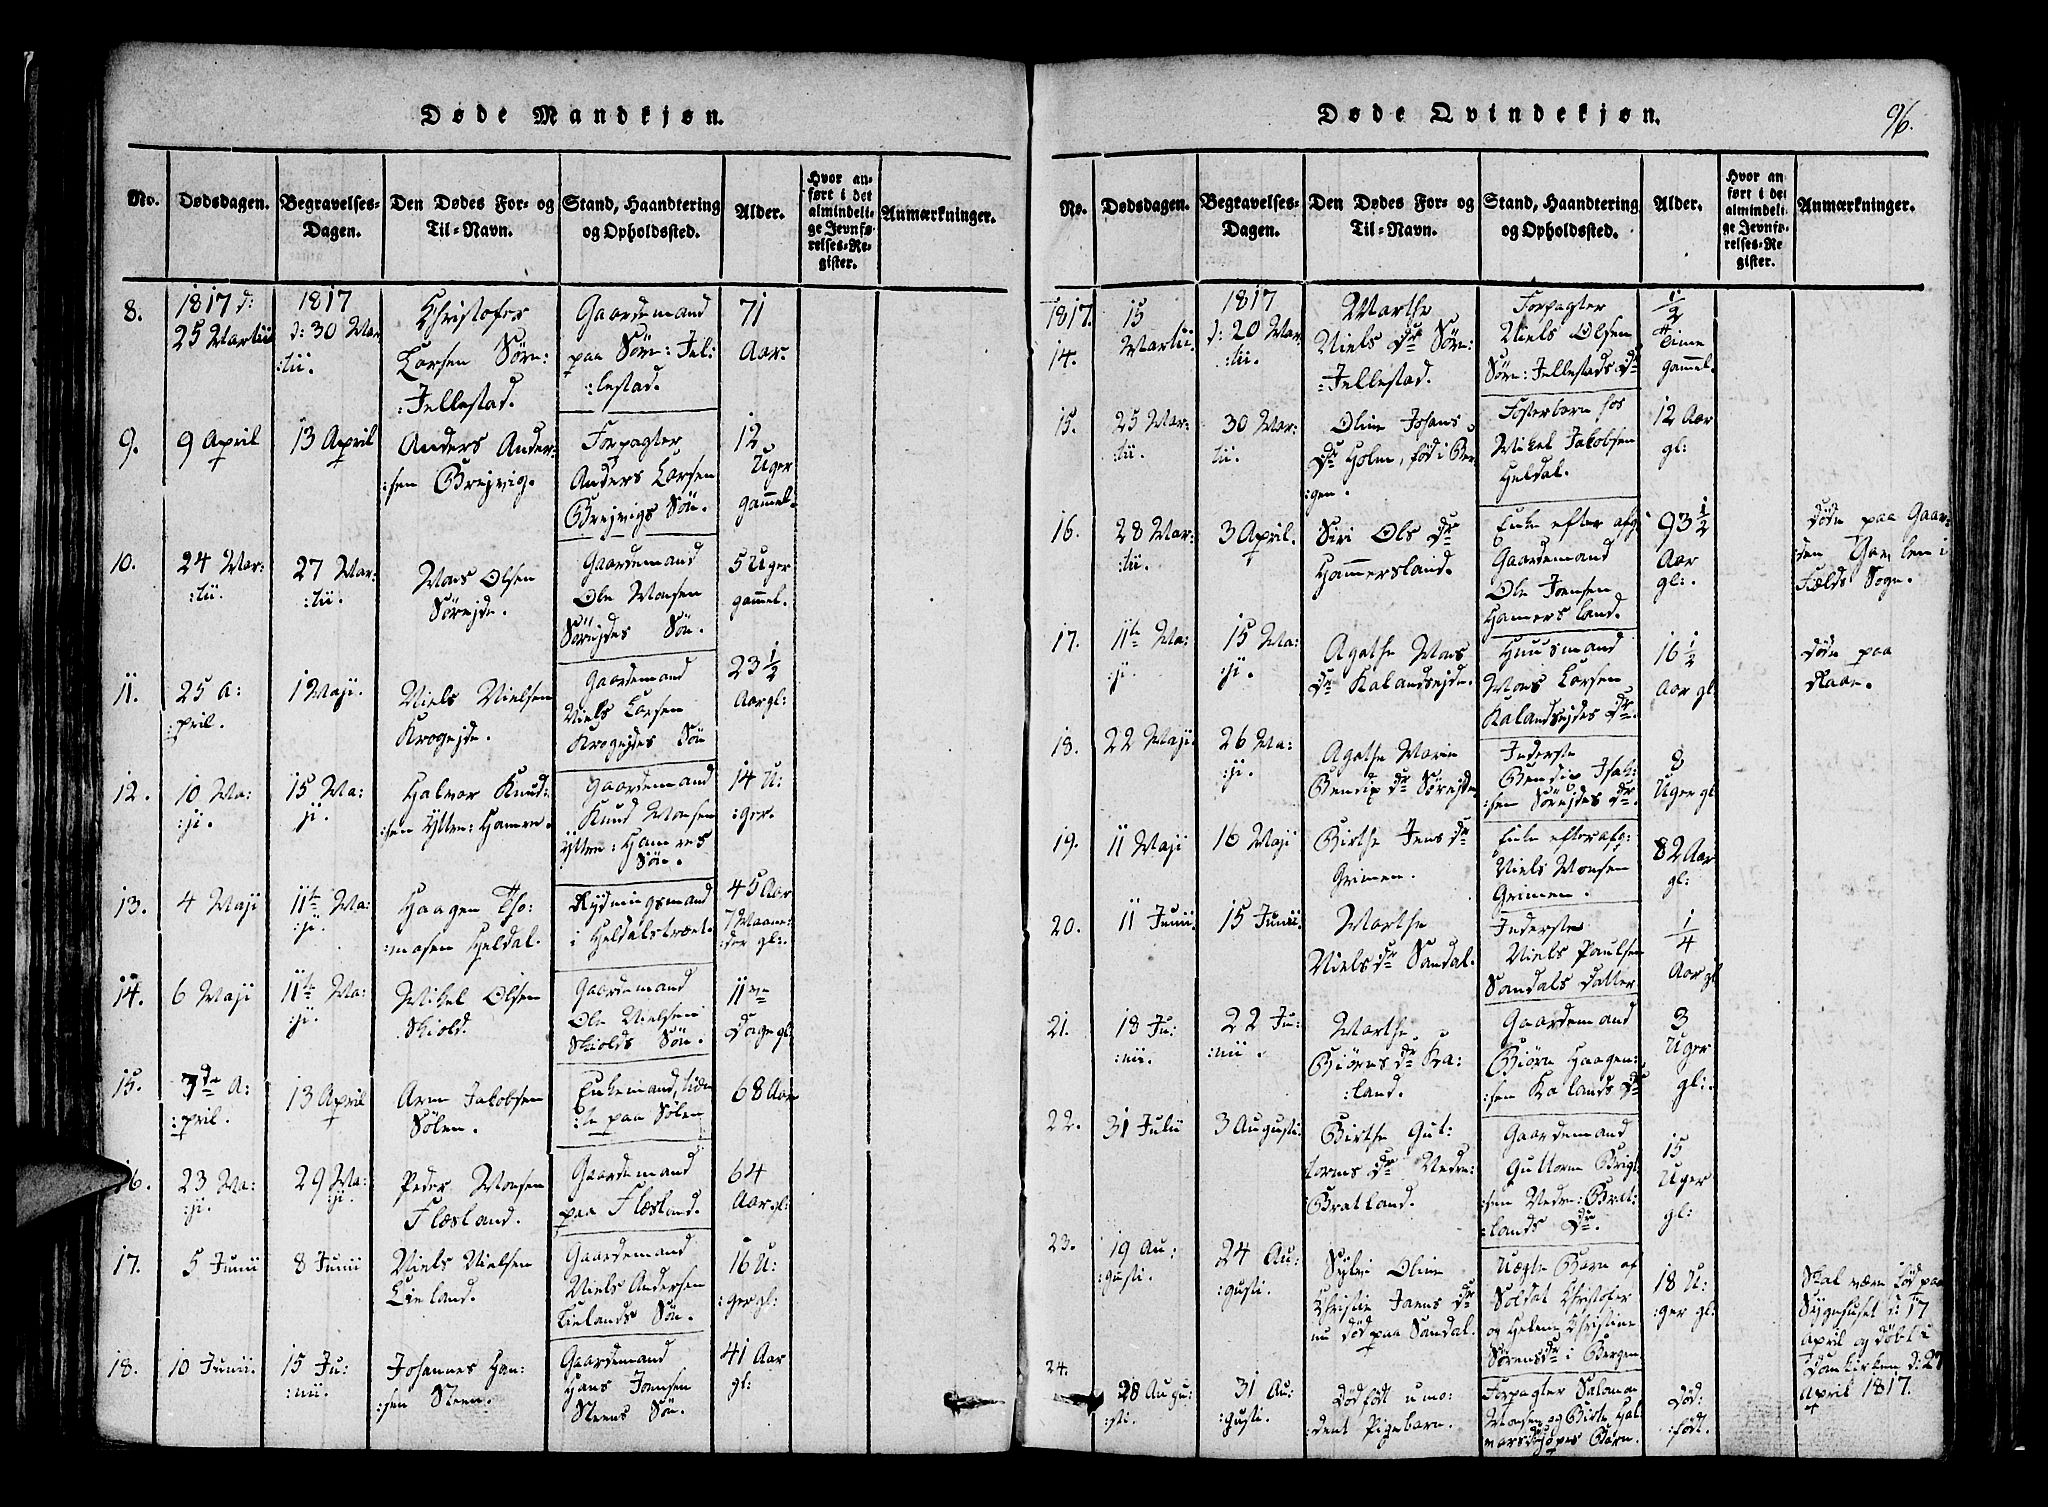 Døde Mandkjøn.
No.
Dødsdagen.
Begravelses-
Dagen.
Den Dødes For- og
Til-Navn.
Stand, Haandtering
og Opholdssted.
Alder.
Hvor an-
ført i det
almindeli-
ge Jevnfø-
relses-Re-
gister.
Anmærkninger.
8.
1817 d:
25 Martii
1817
d: 30 Mar
:tii.
Christofer
Larsen Søre:
:Jellestad.
Gaardemand
paa Søre: Jel:
:lestad.
71
Aar.
9.
9 April
13 April
Anders Ander-
:sen Brejvig.
Forpagter
Anders Larsen
Brejvigs Søn.
12
Uger
gammel.
10.
24 Mar:
:tii.
27 Mar:
:tii.
Mons Olsen
Sørejde.
Gaardemand
Ole Monsen
Sørejdes Søn.
5 Uger
gammel.
11.
25 A:
:pril.
1 Maji.
Niels Nielsen
Krogejde.
Gaardemand
Niels Larsen
Krogejdes Søn
23 1/2
Aar gl:
12.
10 Ma:
:ji.
15 Ma:
ji.
Halvor Knud:
:sen Ytre: Hamre.
Gaardemand
Knud Monsen
Ytre: Hamres
Søn.
14 U:
:ger.
13.
4 Maji
11te Ma:
:ji.
Haagen Tho:
:masen Heldal.
Rydningsmand
i Heldalstræet.
45 Aar
7 Maane:
:der gl:.
14.
6 Maji
11te Ma:
:ji.
Mikel Olsen
Skiold.
Gaardemand
Ole Nielsen
Skiolds Søn.
11ve
Dage gl:
15.
3de A:
:pril.
13 April
Arne Jakobsen
Sølen.
Enkemand,
paa Sølen
68 Aar
16.
23 Ma:
:ji.
29 Ma:
:ji.
Peder Monsen
Flæsland.
Gaardemand
paa Flæsland.
64
Aar gl:
17.
5 Junii
8 Junii
Niels Nielsen
Lieland.
Gaardemand
Niels Andersen
Lielands Søn.
16 U:
:ger gl:
18.
10 Junii.
15 Ju:
:nii.
Johannes Han:
:sen Steen.
Gaardemand
Hans Joensen
Steens Søn.
41 Aar
gl:
Døde Qvindekjøn.
96.
No.
Dødsdagen.
Begravelses-
Dagen.
Den Dødes For- og
Til-Navn.
Stand, Haandtering
og Opholdssted.
Alder.
Hvor an
ført i det
almindeli-
ge Jevnfø-
relses-Re
gister.
Anmærkninger.
1817.
14.
15
Martii.
1817
d: 20 Mar
:tii.
Marthe
Niels Dr Søre:
:Jellestad.
Forpagter
Niels Olsen
Søre: Jellestads Dr
1/2
Time
gammel.
15.
25 Mar:
:tii.
30 Mar:
tii.
Oline Johans
Dr Holm, fød i Ber
:gen.
Fosterbarn hos
Mikel Jakobsen
Heldal.
12 Aar
gl:
16.
28 Mar:
:tii.
3 April.
Siri Ols Dr
Hammersland.
Enke efter afg:
Gaardemand
Ole Joensen
Hamersland.
93 1/2
Aar
gl:.
Døde paa Gaar:
:den
i
Fields Sogn.
17.
11te Ma:
:ji.
15 Ma:
:ji.
Agathe Mons
Dr Kalandsejde.
Huusmand
Mons Larsen
Kalandsejdes Dr.
16 1/2
Aar gl:
Døde paa
Raae.
18.
22 Maji.
26 Ma:
:ji.
Agathe Marie
Bendix Dr Sørejde
Inderste
Bendix Isak:
:sen Sørejdes Dr.
8
Uger gl:
19.
11 Maji
16 Maji
Birthe Jens Dr
Grimen.
Enke efter afg:
Niels Monsen
Grimen.
82 Aar
gl:
20.
11 Junii
15 Junii.
Marthe
Niels Dr Sandal.
Inderste
Niels Paulsen
Sandals Datter
1/4
Aar gl
21.
18 Ju:
:nii.
22 Ju:
:nii.
Marthe
Biørns Dr Ka:
:land.
Gaardemand
Biørn Haagen:
:sen Kalands Dr
3
Uger
gl:.
22.
31 Julii
3 Augusti.
Birthe Gut:
torms Dr Nedre:
Bratland.
Gaardemand
Guttorm Brigt
:sen Nedre: Brat:
:lands Dr.
15
Uger
gl:
23.
19 Au:
:gusti.
24 Au:
:gusti.
Sylvi Oline
Christie Jaens Dr
nu død paa Sandal.
Uægte Barn af
Soldat Christofer
og Helene Christine
Sørens Dr i Bergen
18 U:
:ger gl:
Skal være fød paa
Sygehuset d: 17
April og døbt i
Domkirken d: 27
April 1817.
24.
28 Augu:
:sti.
31 Au:
:gusti.
Dødfødt umo:
:dent Pigebarn.
Forpagter Salomon
Monsen og Birte Hal
Barn.
Død:
:født.